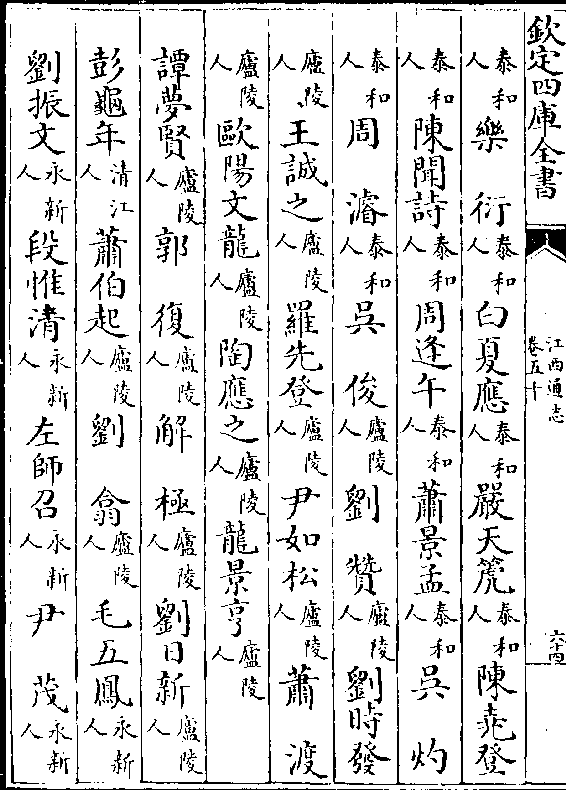 欽定四庫全書
江西通志
卷五十
六十四
泰和人樂衍泰和人白夏應泰和人嚴天篪泰和人陳堯登
泰和人陳聞詩泰和人周逢午泰和人蕭景孟泰和人吳灼
泰和人周濬泰和人吳俊廬陵人劉贊廬陵人劉時發
廬陵人王誠之廬陵人羅先登廬陵人尹如松廬陵人蕭渡
廬陵人歐陽文龍廬陵人陶應之廬陵人龍景亨廬陵人
譚夢賢廬陵人郭復廬陵人解極廬陵人劉日新廬陵人
彭龜年清江人蕭伯起廬陵人劉翕廬陵人毛五鳳永新人
劉振文永新人段惟清永新人左師召永新人尹茂永新人